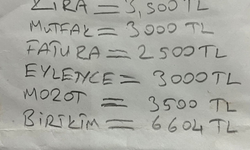 KİRA = 3,500 TL
MUTFAK = 3000 TL
FATURA = 2500 TL
EYLENCE = 3000 TL
MOZOT = 3500 TL
BİRİKİM = 6604 TL